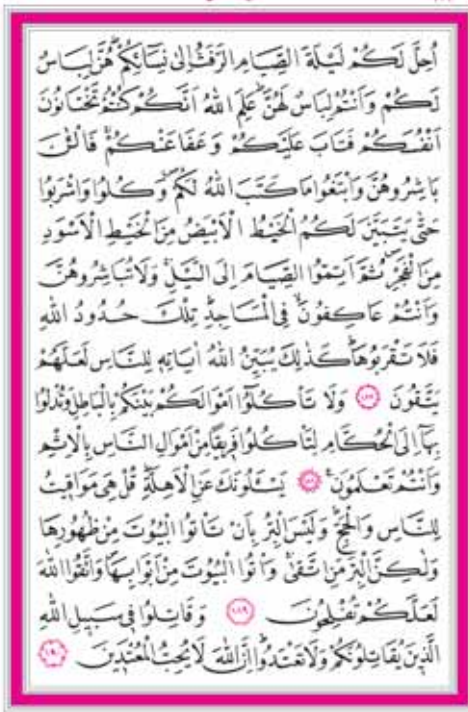 اُحِلَّ لَكُمْ لَيْلَةَ الصِّيَامِ الرَّفَثُ اِلٰى نِسَٓائِكُمْۜ هُنَّ لِبَاسٌ
لَكُمْ وَاَنْتُمْ لِبَاسٌ لَهُنَّۜ عَلِمَ اللّٰهُ اَنَّكُمْ كُنْتُمْ تَخْتَانُونَ
اَنْفُسَكُمْ فَتَابَ عَلَيْكُمْ وَعَفَا عَنْكُمْۚ فَالْـٰٔنَ
بَاشِرُوهُنَّ وَابْتَغُوا مَا كَتَبَ اللّٰهُ لَكُمْۖ وَكُلُوا وَاشْرَبُوا
حَتّٰى يَتَبَيَّنَ لَكُمُ الْخَيْطُ الْاَبْيَضُ مِنَ الْخَيْطِ الْاَسْوَدِ
مِنَ الْفَجْرِۖ ثُمَّ اَتِمُّوا الصِّيَامَ اِلَى الَّيْلِۚ وَلَا تُبَاشِرُوهُنَّ
وَاَنْتُمْ عَاكِفُونَۙ فِي الْمَسَاجِدِۜ تِلْكَ حُدُودُ اللّٰهِ
فَلَا تَقْرَبُوهَاۜ كَذٰلِكَ يُبَيِّنُ اللّٰهُ اٰيَاتِه۪ لِلنَّاسِ لَعَلَّهُمْ
يَتَّقُونَ ﴿١٨٧﴾ وَلَا تَأْكُلُٓوا اَمْوَالَكُمْ بَيْنَكُمْ بِالْبَاطِلِ وَتُدْلُوا
بِهَٓا اِلَى الْحُكَّامِ لِتَأْكُلُوا فَر۪يقًا مِنْ اَمْوَالِ النَّاسِ بِالْاِثْمِ
وَاَنْتُمْ تَعْلَمُونَ۟ ﴿١٨٨﴾ يَسْـَٔلُونَكَ عَنِ الْاَهِلَّةِۜ قُلْ هِيَ مَوَاق۪يتُ
لِلنَّاسِ وَالْحَجِّۜ وَلَيْسَ الْبِرُّ بِاَنْ تَأْتُوا الْبُيُوتَ مِنْ ظُهُورِهَا
وَلٰكِنَّ الْبِرَّ مَنِ اتَّقٰىۚ وَأْتُوا الْبُيُوتَ مِنْ اَبْوَابِهَاۖ وَاتَّقُوا اللّٰهَ
لَعَلَّكُمْ تُفْلِحُونَ ﴿١٨٩﴾ وَقَاتِلُوا ف۪ي سَب۪يلِ اللّٰهِ
الَّذ۪ينَ يُقَاتِلُونَكُمْ وَلَا تَعْتَدُواۜ اِنَّ اللّٰهَ لَا يُحِبُّ الْمُعْتَد۪ينَ ﴿١٩٠﴾